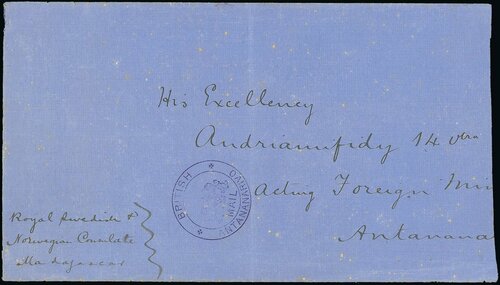 His Excellency
Andriamifidy 14 vtra
Acting Foreign Min
Antanana
BRITISH MAIL
ANTANANARIVO
Royal Swedish &
Norwegian Consulate
Madagascar